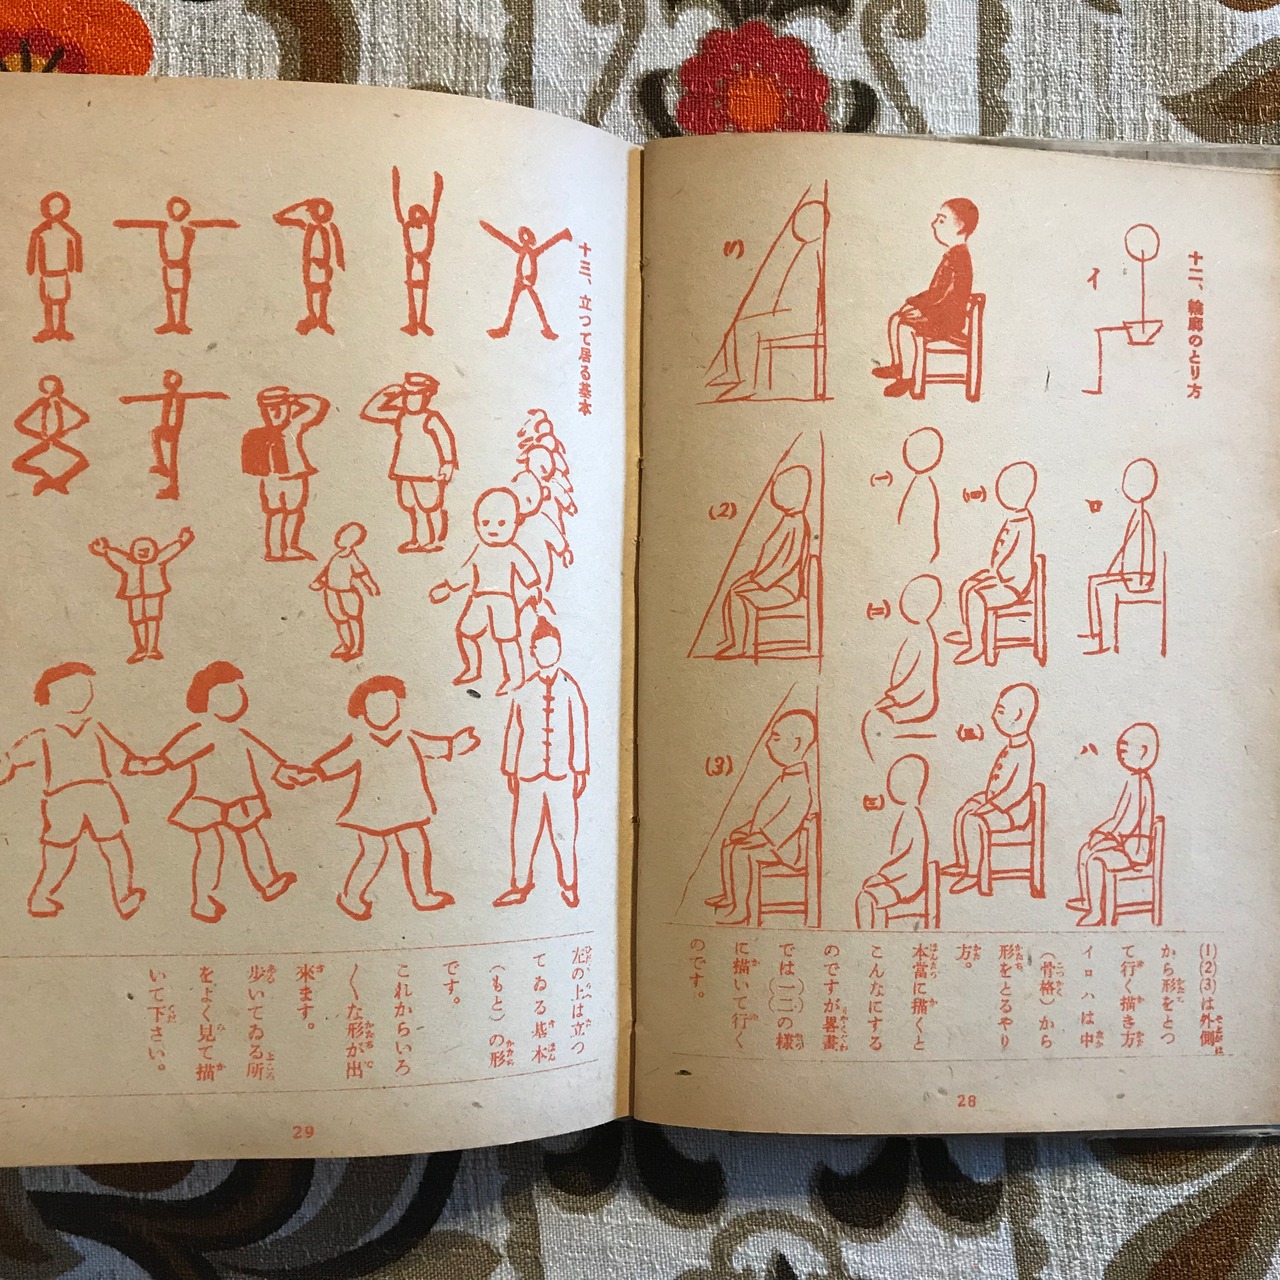 十二、輪廓のとり方
イ
ロ
ハ
(一)
(二)
(三)
(四)
(五)
(1)
(2)
(3)
(1)(2)(3)は外側
から形をとつ
て行く描き方
イロハは中
(骨格)から
形をとるやり
方。
本當に描くと
こんなにする
のですが畧畫
では(一)(二)の様
に描いて行く
のです。
28
十三、立つて居る基本
左の上は立つ
てゐる基本
(もと)の形
です。
これからいろ
〱な形が出
來ます。
歩いてゐる所
をよく見て描
いて下さい。
29